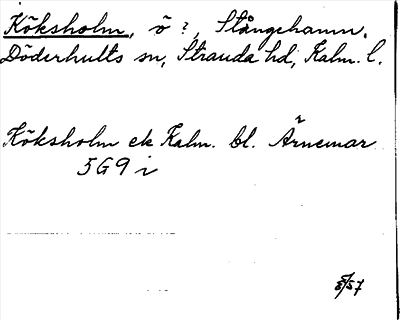 Köksholm, ö ?, Stångehamn,
Döderhults sn, Stranda hd, Kalm. l.
Köksholm ek Kalm. bl. Ärnemar
5G9i
5/57